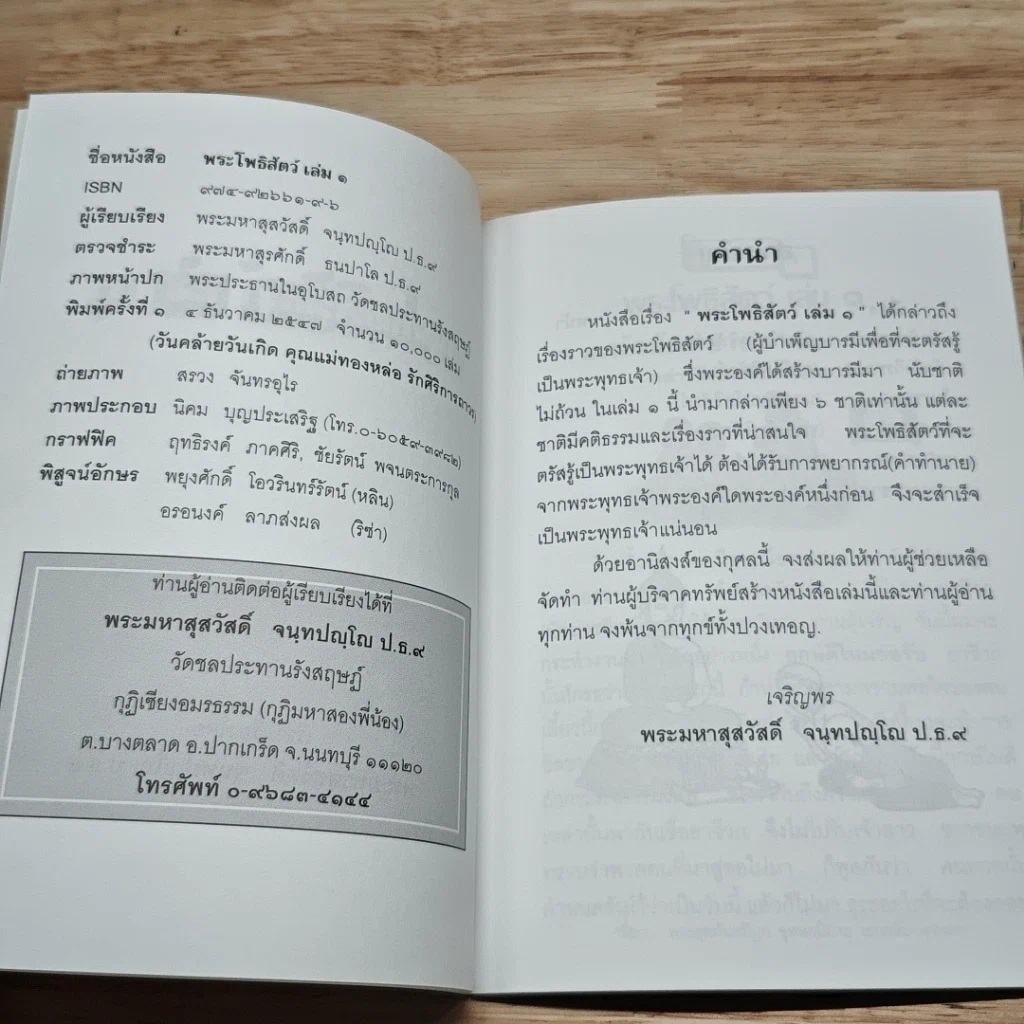 ชื่อหนังสือ พระโพธิสัตว์ เล่ม ๑
ISBN ๙๗๔-๙๒๖๖๑-๙-๖
ผู้เรียบเรียง พระมหาสุสวัสดิ์ จนฺทปญฺโญ ป.ธ.๙
ตรวจชำระ พระมหาสุรศักดิ์ ธนปาโล ป.ธ.๙
ภาพหน้าปก พระประธานในอุโบสถ วัดชลประทานรังสฤษฏ์
พิมพ์ครั้งที่ ๑ ๔ ธันวาคม ๒๕๔๗ จำนวน ๑๐,๐๐๐ เล่ม
(วันคล้ายวันเกิด คุณแม่ทองหล่อ รักศิริการถาวร)
ถ่ายภาพ สรวง จันทรอุไร
ภาพประกอบ นิคม บุญประเสริฐ (โทร.๐-๖๐๕๙-๓๙๘๒)
กราฟฟิค ฤทธิรงค์ ภาคศิริ, ชัยรัตน์ พจนตระการกุล
พิสูจน์อักษร พยุงศักดิ์ โอวรินทร์รัตน์ (หลิน)
อรอนงค์ ลาภส่งผล (ริซ่า)
ท่านผู้อ่านติดต่อผู้เรียบเรียงได้ที่
พระมหาสุสวัสดิ์ จนฺทปญฺโญ ป.ธ.๙
วัดชลประทานรังสฤษฏ์
กุฏิเซียงอมรธรรม (กุฏิมหาสองพี่น้อง)
ต.บางตลาด อ.ปากเกร็ด จ.นนทบุรี ๑๑๑๒๐
โทรศัพท์ ๐-๙๖๘๓-๔๑๔๔
คำนำ
หนังสือเรื่อง " พระโพธิสัตว์ เล่ม ๑ " ได้กล่าวถึง
เรื่องราวของพระโพธิสัตว์ (ผู้บำเพ็ญบารมีเพื่อที่จะตรัสรู้
เป็นพระพุทธเจ้า) ซึ่งพระองค์ได้สร้างบารมีมา นับชาติ
ไม่ถ้วน ในเล่ม ๑ นี้ นำมากล่าวเพียง ๖ ชาติเท่านั้น แต่ละ
ชาติมีคติธรรมและเรื่องราวที่น่าสนใจ พระโพธิสัตว์ที่จะ
ตรัสรู้เป็นพระพุทธเจ้าได้ ต้องได้รับการพยากรณ์(คำทำนาย)
จากพระพุทธเจ้าพระองค์ใดพระองค์หนึ่งก่อน จึงจะสำเร็จ
เป็นพระพุทธเจ้าแน่นอน
ด้วยอานิสงส์ของกุศลนี้ จงส่งผลให้ท่านผู้ช่วยเหลือ
จัดทำ ท่านผู้บริจาคทรัพย์สร้างหนังสือเล่มนี้และท่านผู้อ่าน
ทุกท่าน จงพ้นจากทุกข์ทั้งปวงเทอญ.
เจริญพร
พระมหาสุสวัสดิ์ จนฺทปญฺโญ ป.ธ.๙